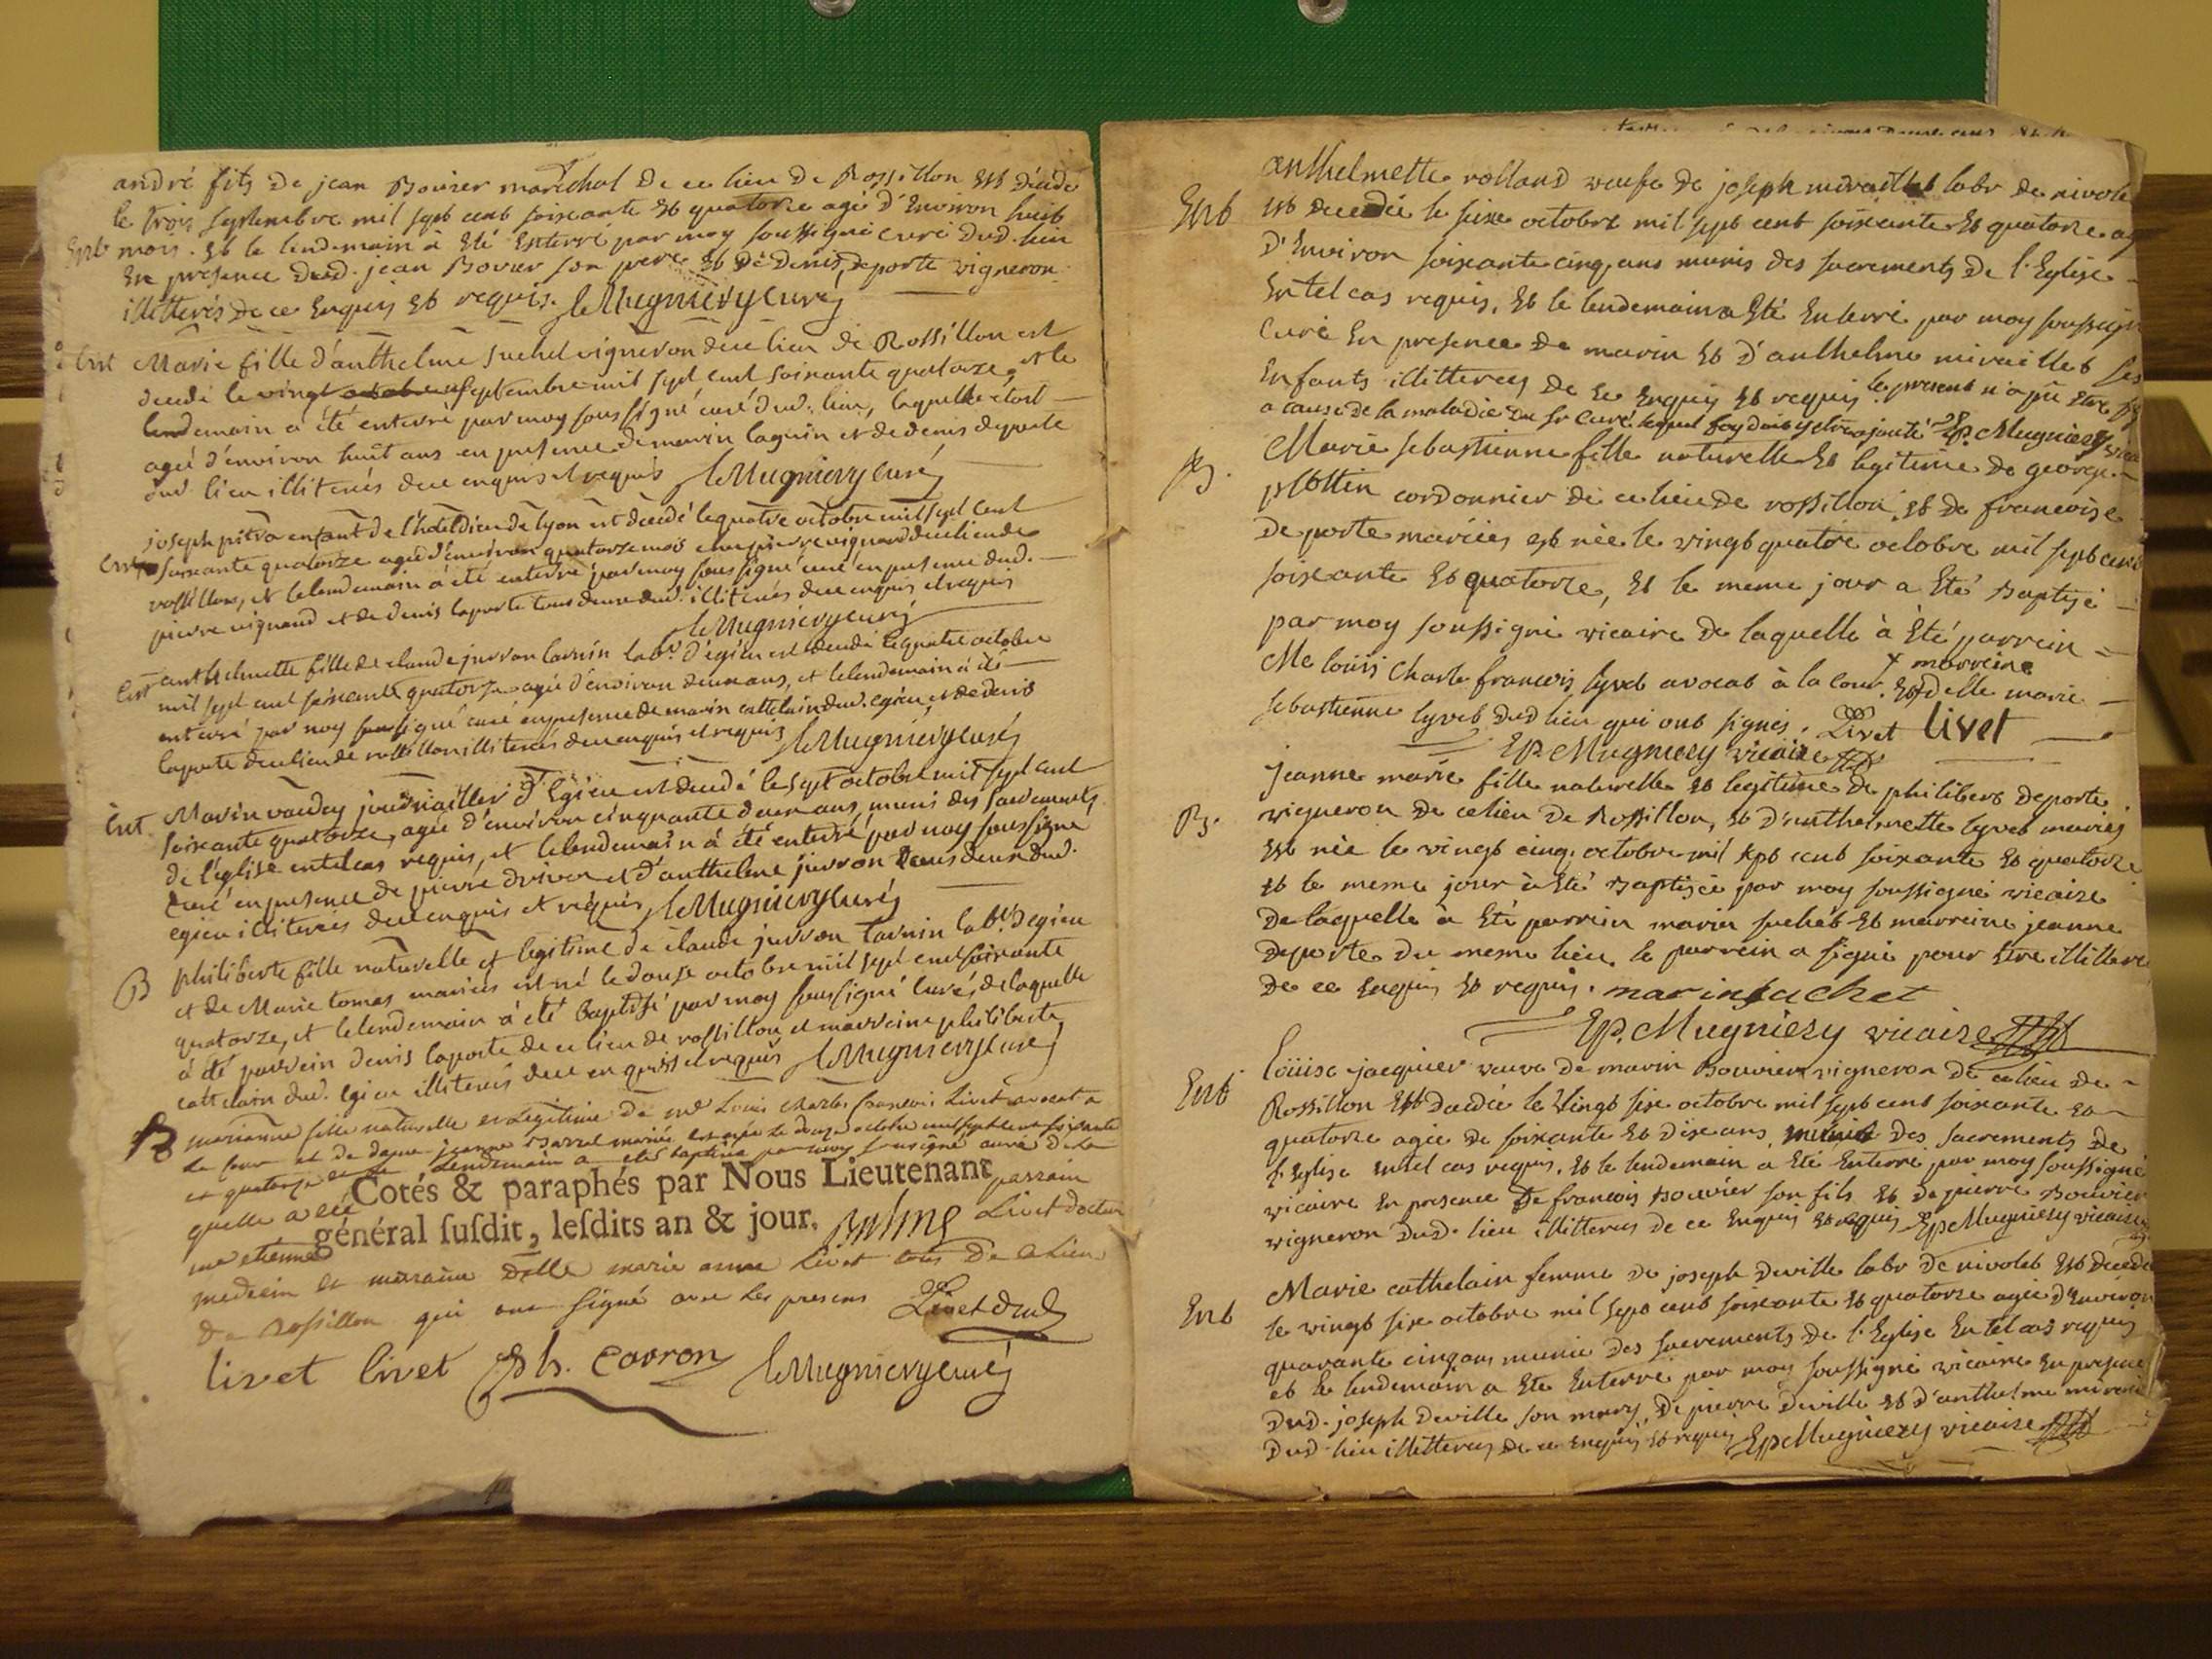 andré fils de jean Bovier maréchal de ce lieu de Rossillon est décédé
le trois septembre mil sept cent soixante et quatorze agé d'Environ huit
Ent mois. et le lendemain à été Enterré par moy soussigné curé dud. lieu
En presence dud. jean Bovier son pere et de denis deporte vigneron
illetterés de ce Enquis et requis. leMugnieryCuré
Ent Marie fille d'anthelme suchet vigneron de ce lieu de Rossillon est
decedé le vingt septembre mil sept cent soixante quatorze, et le
lendemain a été enterré par moy soussigné curé dud. lieu, laquelle étoit
agée d'environ huit ans en presence de marin laguin et de denis deporte
dud. lieu illiterés de ce enquis et requis leMugnieryCuré
joseph pitra enfant de l'hoteldieu de lyon est decedé le quatre octobre mil sept cent
Ent soixante quatorze agé d'environ quatorze mois chez pierre vignand de ce lieu de
rossillon, et le lendemain à été enterré par moy soussigné curé en presence dud.
pierre vignand et de denis laporte tous deux dud. illiterés de ce enquis et requis
leMugnieryCuré
Ent anthelmette fille de claude juvvon tarnin labr. d'egieu est decedé le quatre octobre
mil sept cent soixante quatorze agée d'environ deux ans, et le lendemain à été
enterré par moy soussigné curé en presence de marin cattelain dud. egieu et de denis
laporte de ce lieu de rossillon illiterés de ce enquis et requis leMugnieryCuré
Ent. Marin vauday journailler d'Egieu est decedé le sept octobre mil sept cent
soixante quatorze, agé d'environ cinquante deux ans, muni des sacrements
de l'église en tel cas requis, et le lendemain à été enterré par moy soussigné
curé en presence de pierre et d'anthelme juvvon tous deux dud.
egieu illiterés de ce enquis et requis leMugnieryCuré
B philiberte fille naturelle et legitime de claude juvvon tarnin labr. d'egieu
et de Marie tomas mariés est né le douse octobre mil sept cent soixante
quatorze, et le lendemain à été baptisé par moy soussigné curé, de laquelle
à été parrein denis laporte de ce lieu de rossillon et marreine philiberte
cattelain dud. egieu illiterés de ce enquis et requis leMugnieryCuré
B marianne fille naturelle et legitime de me Louis charles francois Livet avocat a
la cour et de dame jeanne Barral mariés est née le douze octobre mil sept cent soixante
et quatorze et le lendemain a eté baptisée par moy sousigné curé de la
Cotés & paraphés par Nous Lieutenant
quelle a eté parrain
général susdit, lesdits an & jour.
me etienne Livet docteur
medecin et maraine Delle marie anne Livet tous de ce lieu
de Rossillon qui ont signé avec les presens Livet
livet livet Ph. Carron leMugnieryCuré
anthelmette rolland veufe de joseph miraillet labr de nivole
Ent est decedée le seixe octobre mil sept cent soixante et quatorze
d'Environ soixante cinq ans munis des sacrements de l'Eglise
En tel cas requis. et le lendemain a été Enterré par moy
Curé En presence de marin et d'anthelme miraillet ses
Enfants illitterés de ce Enquis et requis le present n'a pû être
a cause de la maladie du Sr Curé Ep. Mugniery
B. Marie sebastienne fille naturelle et legitime de george
plottin cordonnier de ce lieu de rossillon, et de francoise
De porte mariés est née le vingt quatre octobre mil sept cent
soixante et quatorze, et le meme jour a été Baptisé
par moy soussigné vicaire de laquelle à été parrein
Me loüis Charle francois lyvet avocat à la Cour. et + marreine delle marie
sebastienne lyvet dud lieu qui ont signés. Livet livet
Ep. Mugniery vicaire
jeanne marie fille naturelle et legitime de philibert deporte
B. vigneron de ce lieu de Rossillon, et d'anthelmette lyvet mariés
est née le vingt cinq octobre mil sept cent soixante et quatorze
et le meme jour à été Baptisée par moy soussigné vicaire
De laquelle à été parrein marin suchet et marreine jeanne
deporte du meme lieu. le parrein a signé pour être
de ce Enquis et requis. marin suchet
Ep. Mugniery vicaire
Loüise jacquier veuve de marin Bouvier vigneron de ce lieu de
Ent Rossillon est decedée le vingt six octobre mil sept cent soixante et
quatorze agée de soixante et dix ans munie des sacrements de
l'Eglise en tel cas requis. et le lendemain à été Enterré par moy soussigné
vicaire En presence de francois Bouvier son fils et de pierre Bouvier
vigneron dud. lieu illitterés de ce Enquis et requis EpMugniery vicaire
Marie cathelain femme de joseph deville labr de nivolet est decedé
Ent le vingt six octobre mil sept cent soixante et quatorze agée d'Environ
quarante cinq ans munie des sacrements de l'Eglise En tel cas requis
et le lendemain a été Enterré par moy soussigné vicaire En presence
dud. joseph deville son mary, de pierre deville et d'anthelme
dud. lieu illitterés de ce Enquis et requis EpMugniery vicaire